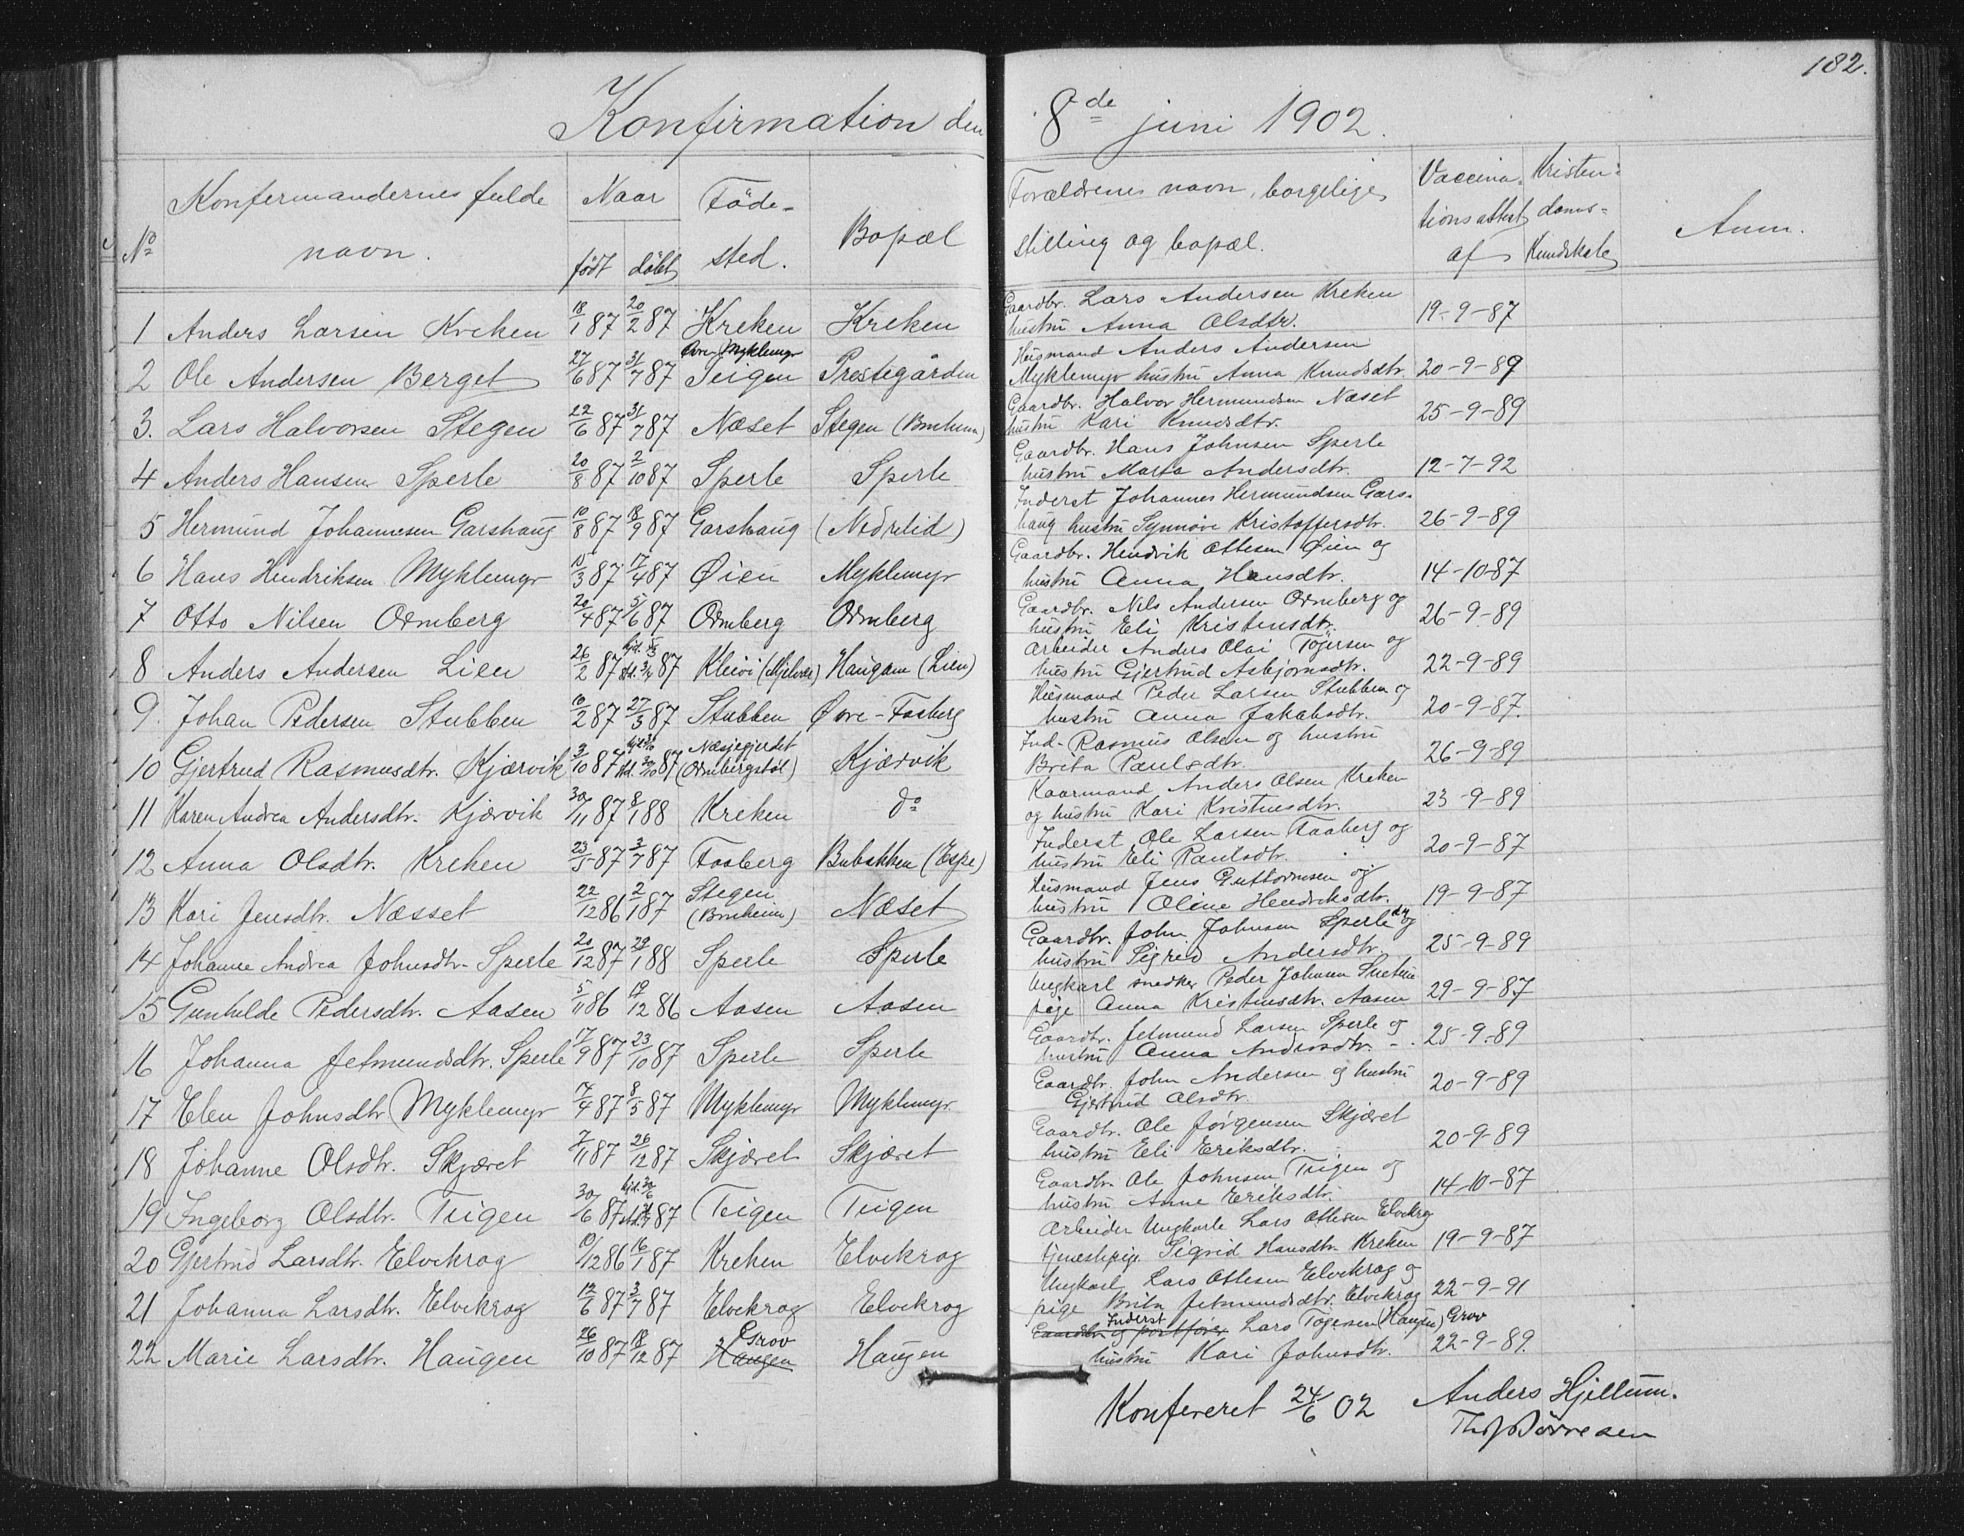 182.
Konfirmation den 8de juni 1902.
No Konfirmandernes fulde navn. Naar født døbt Föde-sted. Bopæl Forældrenes navn, borgelige stilling og bopæl. Vaccina-tionsattest af Kristen-doms-Kundskab Anm.
1 Anders Larsen Kreken 18/1 87 20/2 87 Kreken Kreken Gaardbr. Lars Andersen Kreken hustru Anna Olsdtr. 19-9-87
2 Ole Andersen Berget 27/6 87 31/7 87 Øvre Myklemyr Teigen Prestegården Husmand Anders Andersen Myklemyr hustru Anna Knudsdtr. 20-9-89
3. Lars Halvorsen Stegen 22/6 87 31/7 87 Næset Stegen (Bruheim) Gaardbr. Halvor Hermundsen Næset hustru Kari Knudsdtr. 25-9-89
4 Anders Hansen Sperle 20/8 87 2/10 87 Sperle Sperle Gaardbr. Hans Johnsen Sperle hustru Marta Andersdtr. 12-7-92
5 Hermund Johannesen Garshaug 10/8 87 18/9 87 Garshaug (Nedrelid) Inderst Johannes Hermundsen Gars-haug hustru Synnøve Kristoffersdtr. 26-9-89
6 Hans Hendriksen Myklemyr 15/3 87 17/4 87 Øien Myklemyr Gaardbr. Hendrik Ottesen Øien og hustru Anna Hansdtr. 14-10-87
7 Otto Nilsen Ormberg 20/4 87 5/6 87 Ormberg Ormberg Gaardbr. Nils Andersen Ormberg og hustru Eli Kristensdtr. 26-9-89
8 Anders Andersen Lien 26/2 87 87 Kleivi (Mjelver) Haugam (Lien) Arbeider Anders Olai Töjersen og hustru Gjertrud Asbjørnsdtr. 22-9-89
9. Johan Pedersen Stubben 10/2 87 27/3 87 Stubben Øvre-Faaberg Husmand Peder Larsen Stubben og hustru Anna Jakobsdtr. 20-9-87.
10 Gjertrud Rasmusdtr. Kjærvik 3/10 87 87 Næsjegjerdet (Ormbergstöl) Kjærvik Ind- Rasmus Olsen og hustru Brita Paulsdtr. 26-9-89
11 Karen Andrea Andersdtr. Kjærvik 30/11 87 8/1 88 Kreken do Kaarmand Anders Olsen Kreken og hustru Kari Kristensdtr. 23-9-89
12 Anna Olsdtr. Kreken 23/5 87 3/7 87 Faaberg Bubakken (Espe) Inderst Ole Larsen Faaberg og hustru Eli Paulsdtr. 20-9-87
13 Kari Jensdtr. Næsset 22/12 86 2/1 87 Stegen (Bruheim) Næset Husmand Jens Guttormsen og hustru Oline Hendriksdtr. 19-9-87
14 Johanne Andrea Johnsdtr. Sperle 20/12 87 29/1 88 Sperle Sperle Gaardbr. John Johnsen Sperle og hustru Sigrid Andersdtr. 25-9-89
15 Gunhilde Pedersdtr. Aasen 5/11 86 19/12 86 Aasen Aasen Ungkarl snedker Peder Johnsen pige Anna Kristensdtr. Aasen 29-9-87
16 Johanna Jetmundsdtr. Sperle 17/9 87 23/10 87 Sperle Sperle Gaardbr. Jetmund Larsen Sperle og hustru Anna Andersdtr. 25-9-89
17 Elen Johnsdtr Myklemyr 7/4 87 8/5 87 Myklemyr Myklemyr Gaardbr. John Andersen og hustru Gjertrud Olsdtr. 20-9-89
18 Johanne Olsdtr. Skjæret 7/11 87 26/12 87 Skjæret Skjæret Gaardbr. Ole Jørgensen Skjæret hustru Eli Eriksdtr. 20-9-89
19 Ingeborg Olsdtr. Teigen 30/6 87 87 Teigen Teigen Gaardbr. Ole Johnsen Teigen og hustru Anne Eriksdtr. 14-10-87
20 Gjertrud Larsdtr. Elvekrog 10/12 86 16/1 87 Kreken Elvekrog Arbeider Ungkarl Lars Ottesen Elvekrog tjenestepige Sigrid Hansdtr. Kreken 19-9-87
21 Johanna Larsdtr. Elvekrog 12/6 87 3/7 87 Elvekrog Elvekrog Ungkarl Lars Ottesen Elvekrog og pige Brita Jetmundsdtr. Elvekrog 22-9-91
22 Marie Larsdtr. Haugen 26/10 87 18/12 87 Grov Haugen Haugen Gaardbr. og postfører Inderst Lars Töjersen (Haugen) Grov hustru Kari Johnsdtr. 22-9-89.
Konfereret 24/6 02 Anders Hjellum.
Thf Börresen